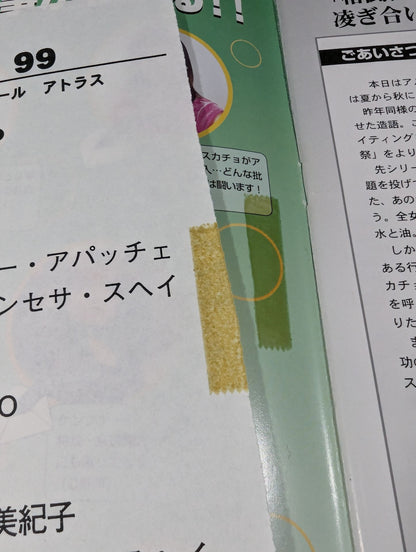 99
ール アトラス
ー・アパッチェ
ンセサ・スヘイ
0
美紀子
!!
スカチョがア
人…どんな批
は闘います！
凌ぎ合い
ごあいさつ
本日はアメ
は夏から秋に
昨年同様の
せた造語。こ
イティング
祭」をより
先シリー
題を投げて
た、あの
う。全女
水と油。
しか
ある行
カチョ
を呼
りた
ま
功の
ス